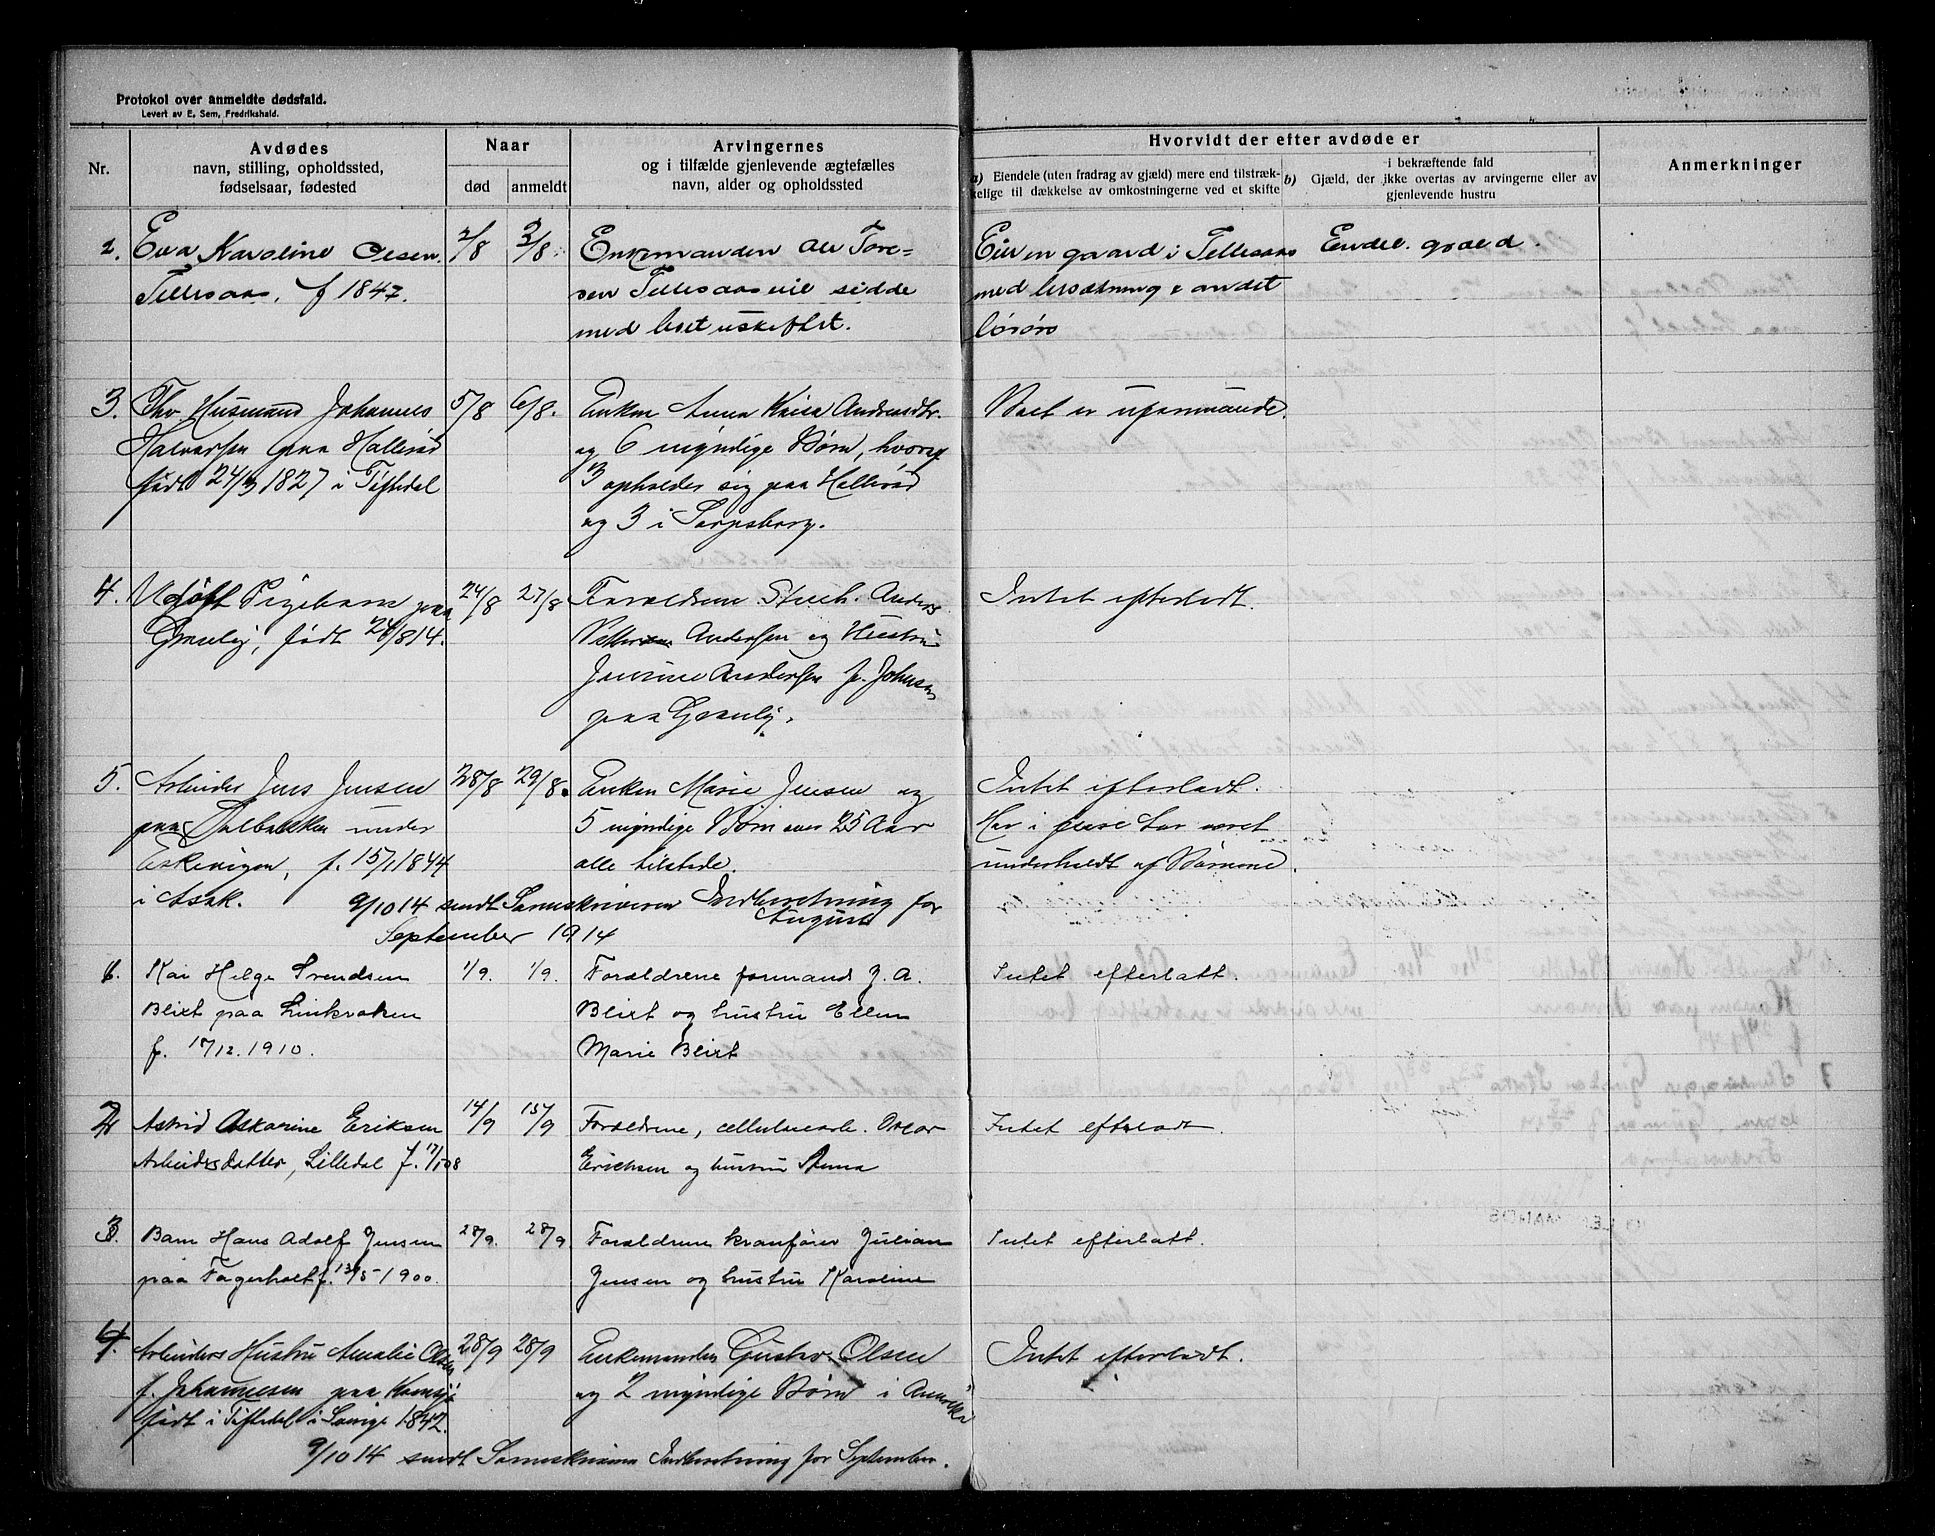 Protokol over anmeldte dødsfald.
Levert av E. Sem, Fredrikshald.
Nr.
Avdødes
navn, stilling, opholdssted,
fødselsaar, fødested
Naar
død
anmeldt
Arvingernes
og i tilfælde gjenlevende ægtefælles
navn, alder og opholdssted
Hvorvidt der efter avdøde er
a) Eiendele (uten fradrag av gjæld) mere end tilstræk-
kelige til dækkelse av omkostningerne ved et skifte
b)
i bekræftende fald
Gjæld, der ikke overtas av arvingerne eller av
gjenlevende hustru
Anmerkninger
2. Eva Karoline Olsen 2/8 3/8 Enkemanden Ole Tore- Eier en gaard i Tellesaas Endel gjæld.
Tillesaas, f 1847. sen Tillesaas vil sidde med besætning & andet
med boet uskiftet. løsøre
3. Fhv Husmand Johannes 5/8 6/8. Enken Anna Kaisa Andreasdtr. Boet er uformuende.
Halvorsen paa Hallerød og 6 myndige Børn, hvoraf
født 24/3 1827 i Tistedal 3 opholder sig paa Hallerød
og 3 i Sarpsborg.
4. Udøpt Pigebarn paa 24/8 27/8 Forældrene Stenh. Anders Intet efterladt.
Granly, født 24/8 14. Andersen og Hustru
Andersen f. Johnsen
paa Granly.
5. Arbeider Jens Jensen 28/8 29/8. Enken Marie Jensen og Intet efterladt.
paa Dalbakken under 5 myndige Børn over 25 Aar Har i flere Aar været
Eskevigen, f. 15/1 1844 alle tilstede. underholdt af Børnene.
i Asak. 9/10 14 sendt Sorenskriveren Indberetning for
August
September 1914
6. Kai Helge Svendsen 1/9. 1/9. Forældrene formand J. A. Intet efterlatt.
Blixt paa Linkroken Blixt og hustru Ellen
f. 17/12. 1910. Marie Blixt
2. Astrid Oskarine Eriksen 14/9 15/9 Forældrene, cellulosearb. Oscar Intet efterladt.
Arbeidersdatter, Lilledal f. 17/1 08 Erichsen og hustru Anna
3. Barn Hans Adolf Jensen 28/9. 28/9. Forældrene kranfører Julian Intet efterlatt.
paa Fagerholt f. 13/5 1900. Jensen og hustru Karoline
4. Arbeiders Hustru Amalie Olsen 28/9 28/9 Enkemanden Gustav Olsen Intet efterladt.
f. Johannesen paa og 2 myndige Børn i Amerika
født i Tistedal i 1842.
9/10 14 sendt Sorenskriveren Indberetning for September.